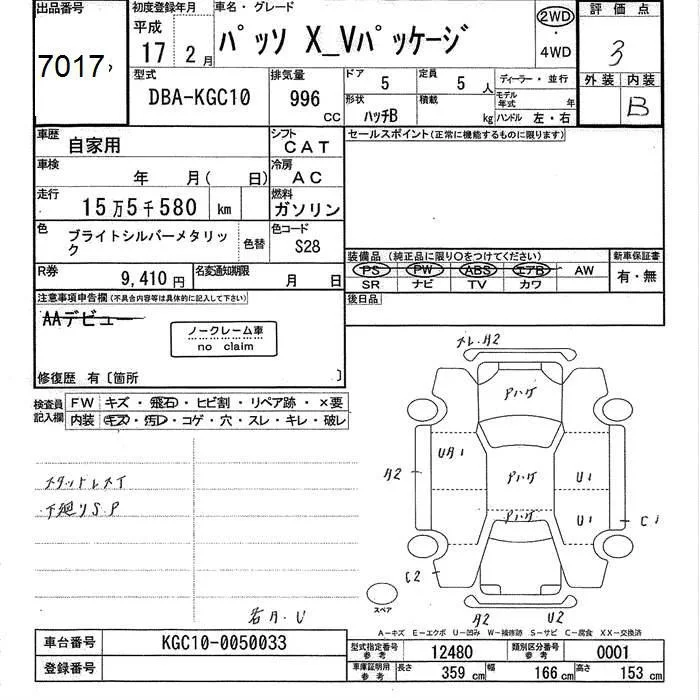 出品番号
7017
初度登録年月
平成
17 2月
車名・グレード
パッソ X_Vパッケージ
2WD
・
4WD
評価点
3
外装 内装
B
型式
DBA-KGC10
排気量
996
CC
ドア 5
定員 5 人
形状
ハッチB
積載
kg
ディーラー・並行
モデル年式 年
ハンドル 左・右
車歴
自家用
シフト
CAT
車検
年 月( 日)
冷房
AC
走行
15万5千580 km
燃料
ガソリン
色
ブライトシルバーメタリック
色替
色コード
S28
R券
9,410円
名変通知期限
月 日
セールスポイント(正常に機能するものに限ります)
装備品 (純正品に限り○をつけてください)
PS PW ABS エアB AW
SR ナビ TV カワ
新車保証書
有・無
後日品
注意事項申告欄(不具合内容等は具体的に記入して下さい)
AAデビュー
ノークレーム車
no claim
修復歴 有〔箇所 〕
検査員記入欄
FW キズ・飛石・ヒビ割・リペア跡・×要
内装 キズ・汚レ・コゲ・穴・スレ・キレ・破レ
下廻りS.P
スレ.A2
アハゲ
UA1
A2
アハゲ
U1
アハゲ
U1
C1
C2
A2
U2
スペア
A-キズ E-エクボ U-凹み W-補修跡 S-サビ C-腐食 XX-交換済
車台番号
KGC10-0050033
登録番号
型式指定番号
参考
12480
類別区分番号
参考
0001
車庫証明用
参考
長さ 359 cm
幅 166 cm
高さ 153 cm